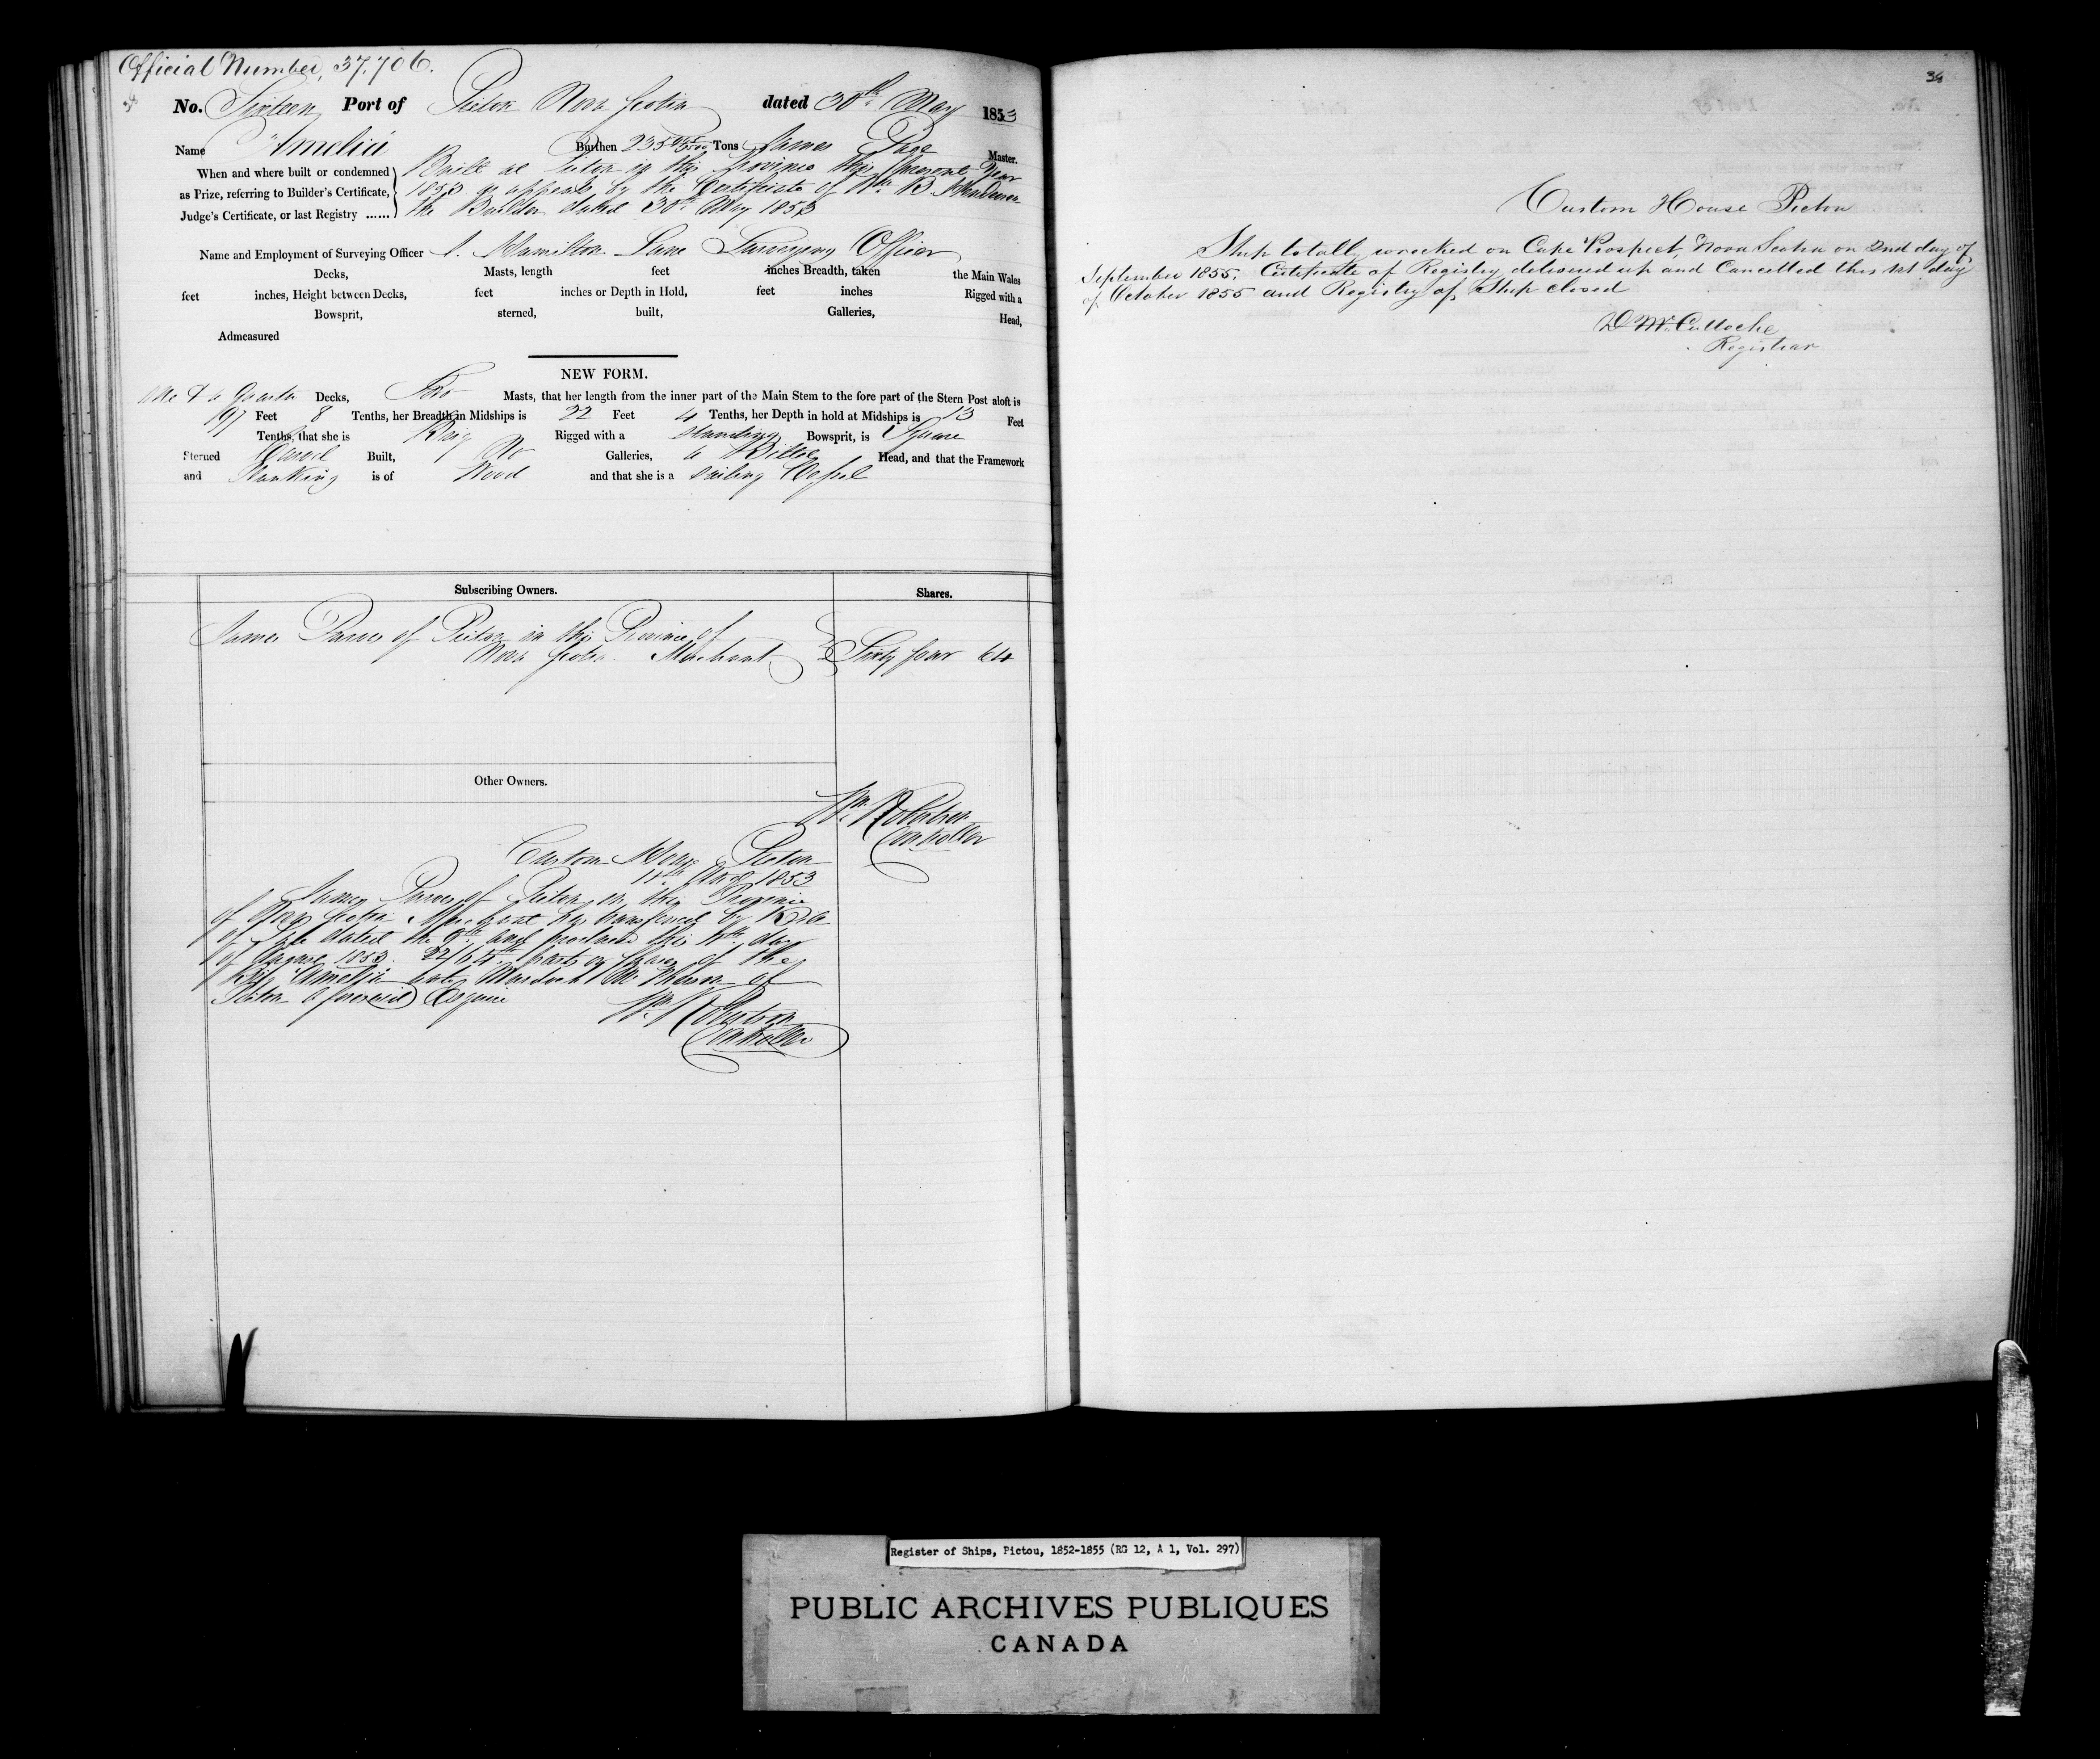 Official Number, 37.706.
No. Sixteen Port of Pictou Nova Scotia dated 30th May 1853
Name "Amelia" Burthen 235 Tons James Page Master.
When and where built or condemned
as Prize, referring to Builder's Certificate,
Judge's Certificate, or last Registry ......
Built at Pictou in this Province this present Year
1853 as appears by the Certificate of Wm B Henderson
the Builder dated 30th May 1853
Name and Employment of Surveying Officer C. Hamilton Lane Surveying Officer
Decks, Masts, length feet inches Breadth, taken the Main Wales
feet inches, Height between Decks, feet inches or Depth in Hold, feet inches Rigged with a
Bowsprit, sterned, built, Galleries, Head,
Admeasured
NEW FORM.
One & a Quarter Decks, Two Masts, that her length from the inner part of the Main Stem to the fore part of the Stern Post aloft is
197 Feet 8 Tenths, her Breadth in Midships is 22 Feet 4 Tenths, her Depth in hold at Midships is 13 Feet
Tenths, that she is Brig Rigged with a standing Bowsprit, is Square
Sterned Carvel Built, No Galleries, a Billet Head, and that the Framework
and Planking is of Wood and that she is a sailing Vessel
Subscribing Owners. Shares.
James Purves of Pictou in this Province of
Nova Scotia Merchant Sixty four 64
Other Owners.
Wm Robertson
Controller
Custom House Pictou
1853
James Purves of Pictou in this Province
of Nova Scotia Merchant has transferred by Bill
of Sale dated the 9th and produced this 11th day
of August 1853. 22/64th parts or shares of the
Brig "Amelia" unto Murdoch McPherson of
Pictou aforesaid Esquire
Wm Robertson
Controller
34
Custom House Pictou
Ship totally wrecked on Cape Prospect, Nova Scotia on 2nd day of
September 1855. Certificate of Registry delivered up and Cancelled this 1st day
of October 1855 and Registry of Ship closed
D McCulloche
Registrar
Register of Ships, Pictou, 1852-1855 (RG 12, A 1, Vol. 297)
PUBLIC ARCHIVES PUBLIQUES
CANADA